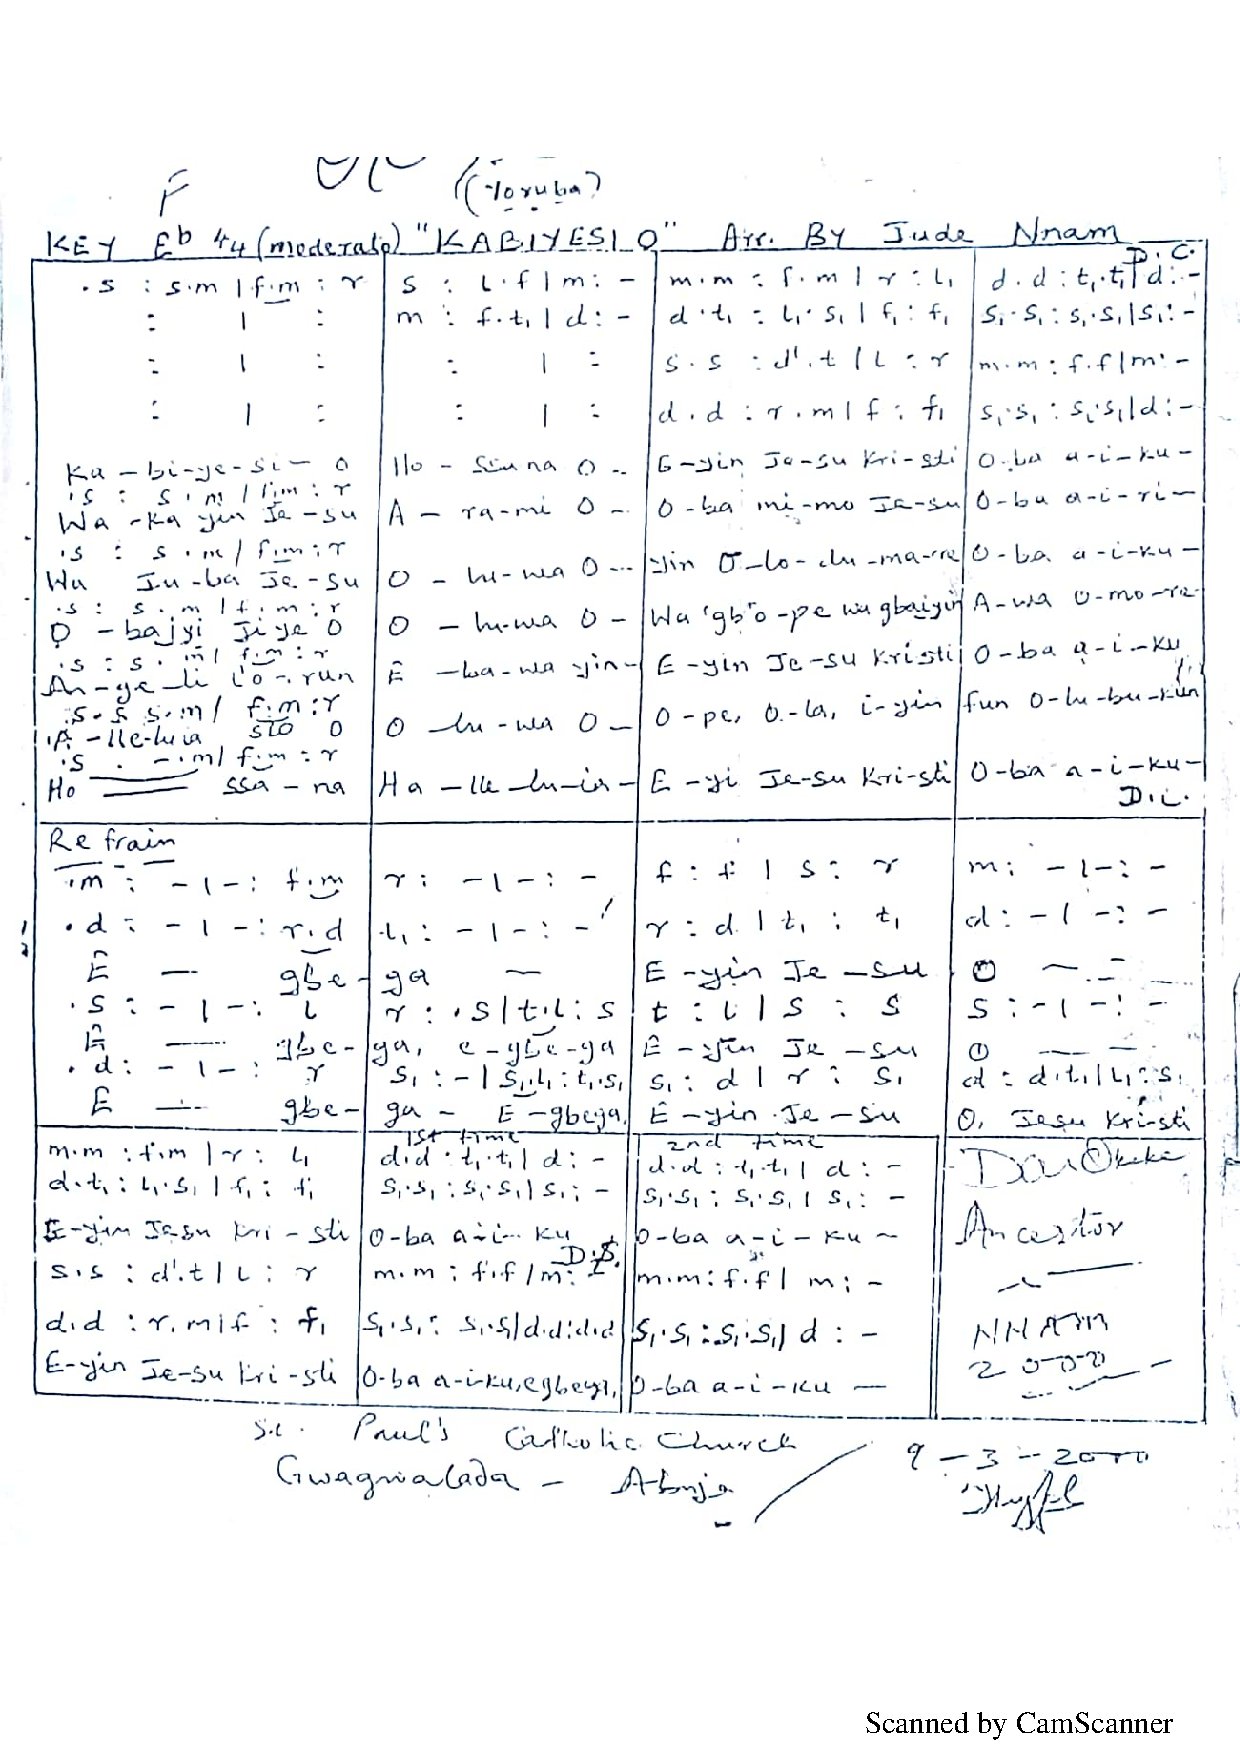 F
(Yoruba)
KEY Eb 4/4 (moderato) "KABIYESI O" Arr. By Jude Nnam
D.C.
.s : s.m | f.m : r   s : l.f | m : -   m.m : f.m | r : l₁   d.d : t₁.t₁ | d : -
: | :   m : f.t₁ | d : -   d.t₁ : l₁.s₁ | f₁ : f₁   s₁.s₁ : s₁.s₁ | s₁ : -
: | :   : | :   s.s : d'.t | l : r   m.m : f.f | m : -
: | :   : | :   d.d : r.m | f : f₁   s₁.s₁ : s₁.s₁ | d : -
Ka - bi-ye-si - o   Ho - ssana O -   E-yin Je-su Kri-sti   O-ba a-i-ku -
.s : s.m / f.m : r
Wa -ka yin Je-su   A - ra-mi O -   O-ba mi-mo Je-su   O-ba a-i-ri -
.s : s.m / f.m : r
Wa Ju-ba Je-su   O - lu-wa O -   yin O-lo-du-ma-re   O-ba a-i-ku -
.s : s.m | f.m : r
O - bajyi Jiye O   O - lu-wa O -   Wa 'gb'o-pe wa gbaiyin   A-wa o-mo-re
.s : s.m / f.m : r
An-ge-li l'o-run   E -ba-wa yin-   E-yin Je-su Kristi   O-ba a-i-ku
.s.s s.m / f.m : r
A-lle-luia SIO O   O -lu-wa O -   O-pe, O-la, i-yin   fun O-lu-bu-kun
.s : -.m / f.m : r
Ho ssa - na   Ha -lle-lu-ia-   E-yi Je-su Kri-sti   O-ba a-i-ku-
D.C.
Refrain
.m : - | - : f.m   r : - | - : -   f : f | s : r   m : - | - : -
.d : - | - : r.d   t₁ : - | - : -   r : d | t₁ : t₁   d : - | - : -
E — gbe-ga —   E -yin Je -su   O —
.s : - | - : l   r : .s | t.l : s   t : l | s : s   s : - | - : -
E — gbe-ga, e-gbe-ga   E -yin Je -su   O —
.d : - | - : r   s₁ : - | s₁.l₁ : t₁.s₁   s₁ : d | r : s₁   d : d.t₁ | l₁ : s₁
E — gbe- ga - E-gbega,   E -yin Je-su   O, Jesu Kri-sti
1st time   2nd time
m.m : f.m | r : l₁   d.d : t₁.t₁ | d : -   d.d : t₁.t₁ | d : -
d.t₁ : l₁.s₁ | f₁ : f₁   s₁.s₁ : s₁.s₁ | s₁ : -   s₁.s₁ : s₁.s₁ | s₁ : -
E-yin Jesu Kri-sti   O-ba a-i-ku   O-ba a-i-ku -
D.S.
s.s : d'.t | l : r   m.m : f.f / m : -   m.m : f.f | m : -
d.d : r.m | f : f₁   s₁.s₁ : s₁.s₁ | d.d : d.d   s₁.s₁ : s₁.s₁ | d : -
E-yin Je-su Kri-sti   O-ba a-i-ku, egbega,   O-ba a-i-ku —
Okeke
Ancestor
NNAM
2000
St. Paul's Catholic Church
Gwagwalada - Abuja
9-3-2000
Scanned by CamScanner